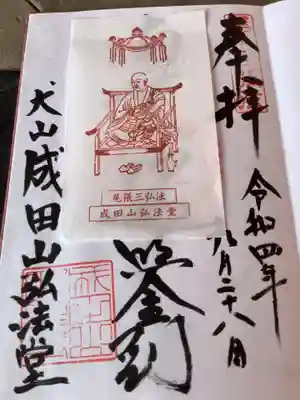 奉拝
令和四年
九月二十八日
尾張三弘法
成田山弘法堂
犬山成田山弘法堂